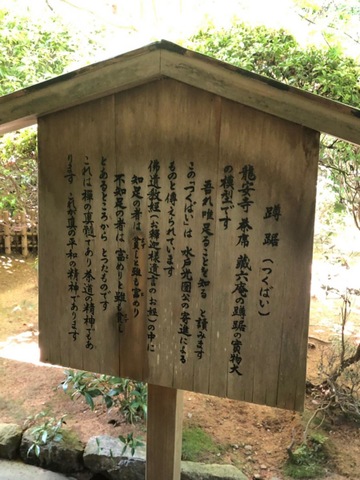 蹲踞（つくばい）
龍安寺 茶席 蔵六庵の蹲踞の実物大
の模型です
吾れ唯足ることを知る と読みます
この「つくばい」は 水戸光圀公の寄進による
ものと伝えられています
佛道教経（お釈迦様遺言のお経）の中に
知足の者は貧しと雖も富めり
不知足の者は 富めりと雖も貧し
とあるところから とったものです
これは禅の真髄であり 茶道の精神でもあ
ります これが真の平和の精神であります